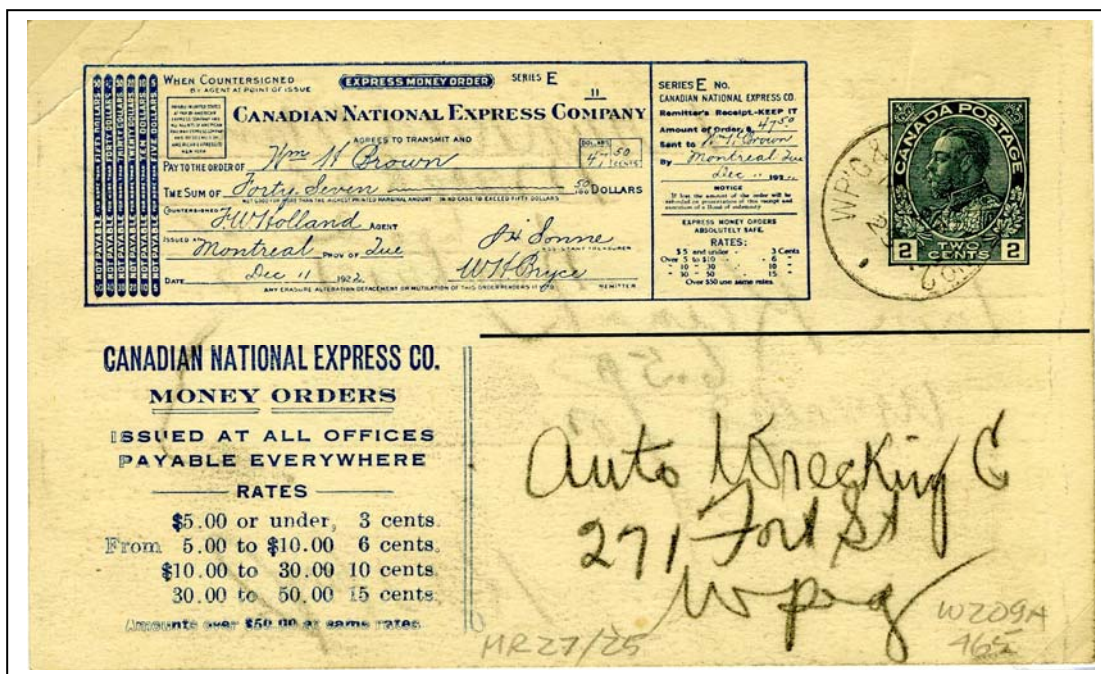 WHEN COUNTERSIGNED
BY AGENT AT POINT OF ISSUE
EXPRESS MONEY ORDER
SERIES E
11
CANADIAN NATIONAL EXPRESS COMPANY
AGREES TO TRANSMIT AND
PAY TO THE ORDER OF Wm H Brown
DOLLARS CENTS
47 50
THE SUM OF Forty Seven 50/100 DOLLARS
NOT GOOD FOR MORE THAN THE HIGHEST PRINTED MARGINAL AMOUNT. IN NO CASE TO EXCEED FIFTY DOLLARS
COUNTERSIGNED J.W. Holland AGENT
ISSUED AT Montreal PROV OF Que
DATE Dec 11 1922
WH Bryce
REMITTER
ANY ERASURE ALTERATION DEFACEMENT OR MUTILATION OF THIS ORDER RENDERS IT VOID
NOT PAYABLE FOR MORE THAN FIFTY DOLLARS 50
NOT PAYABLE FOR MORE THAN FORTY DOLLARS 40
NOT PAYABLE FOR MORE THAN THIRTY DOLLARS 30
NOT PAYABLE FOR MORE THAN TWENTY DOLLARS 20
NOT PAYABLE FOR MORE THAN TEN DOLLARS 10
NOT PAYABLE FOR MORE THAN FIVE DOLLARS 5
SERIES E No.
CANADIAN NATIONAL EXPRESS CO.
Remitter's Receipt.-KEEP IT
Amount of Order, $ 47 50
Sent to W. H. Brown
By Montreal Que
Dec 11 192
NOTICE
If lost the amount of the order will be
refunded on presentation of this receipt and
execution of a Bond of indemnity
EXPRESS MONEY ORDERS
ABSOLUTELY SAFE.
RATES:
$5 and under - 3 Cents
Over 5 to $10 - 6 "
" 10 - 30 - 10 "
" 30 - 50 - 15 "
Over $50 use same rates.
CANADA POSTAGE
2 TWO CENTS 2
WP'G &
CANADIAN NATIONAL EXPRESS CO.
MONEY ORDERS
ISSUED AT ALL OFFICES
PAYABLE EVERYWHERE
RATES
$5.00 or under, 3 cents.
From 5.00 to $10.00 6 cents.
$10.00 to 30.00 10 cents.
30.00 to 50.00 15 cents.
Amounts over $50.00 at same rates.
Auto Wrecking C
271 Fort St
Wpeg
MR27/25
W209A
465